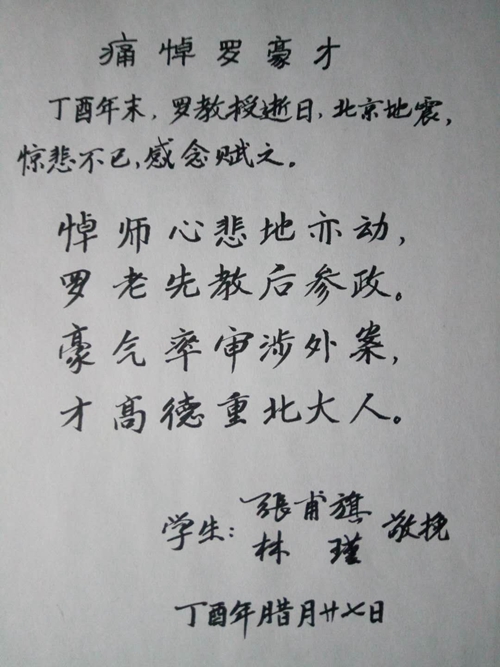 痛悼罗豪才
丁酉年末，罗教授逝日，北京地震，
惊悲不已，感念赋之。
悼师心悲地亦动，
罗老先教后参政。
豪气率审涉外案，
才高德重北大人。
学生：張甫旗 敬挽
林 瑾
丁酉年腊月廿七日